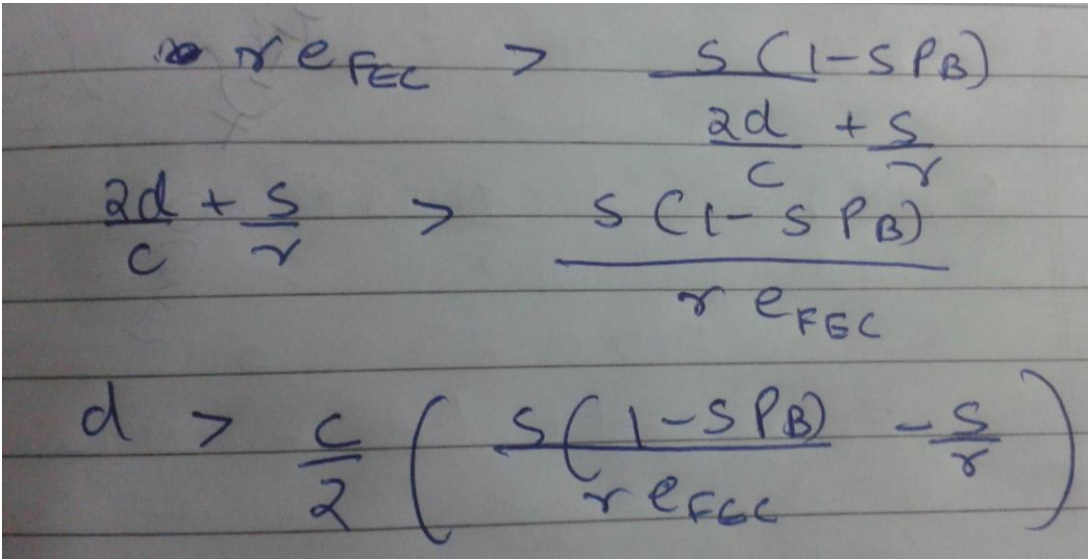 r e_FEC > s(1-sP_B) / (2d/c + s/r)
2d/c + s/r > s(1-sP_B) / (r e_FEC)
d > c/2 ( s(1-sP_B) / (r e_FEC) - s/r )